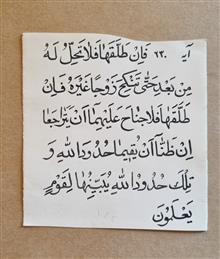 آية ٢٣٠ فَإِن طَلَّقَهَا فَلَا تَحِلُّ لَهُ
مِن بَعْدُ حَتَّىٰ تَنكِحَ زَوْجًا غَيْرَهُ فَإِن
طَلَّقَهَا فَلَا جُنَاحَ عَلَيْهِمَا أَن يَتَرَاجَعَا
إِن ظَنَّا أَن يُقِيمَا حُدُودَ اللهِ وَ
تِلْكَ حُدُودُ اللهِ يُبَيِّنُهَا لِقَوْمٍ
يَعْلَمُونَ